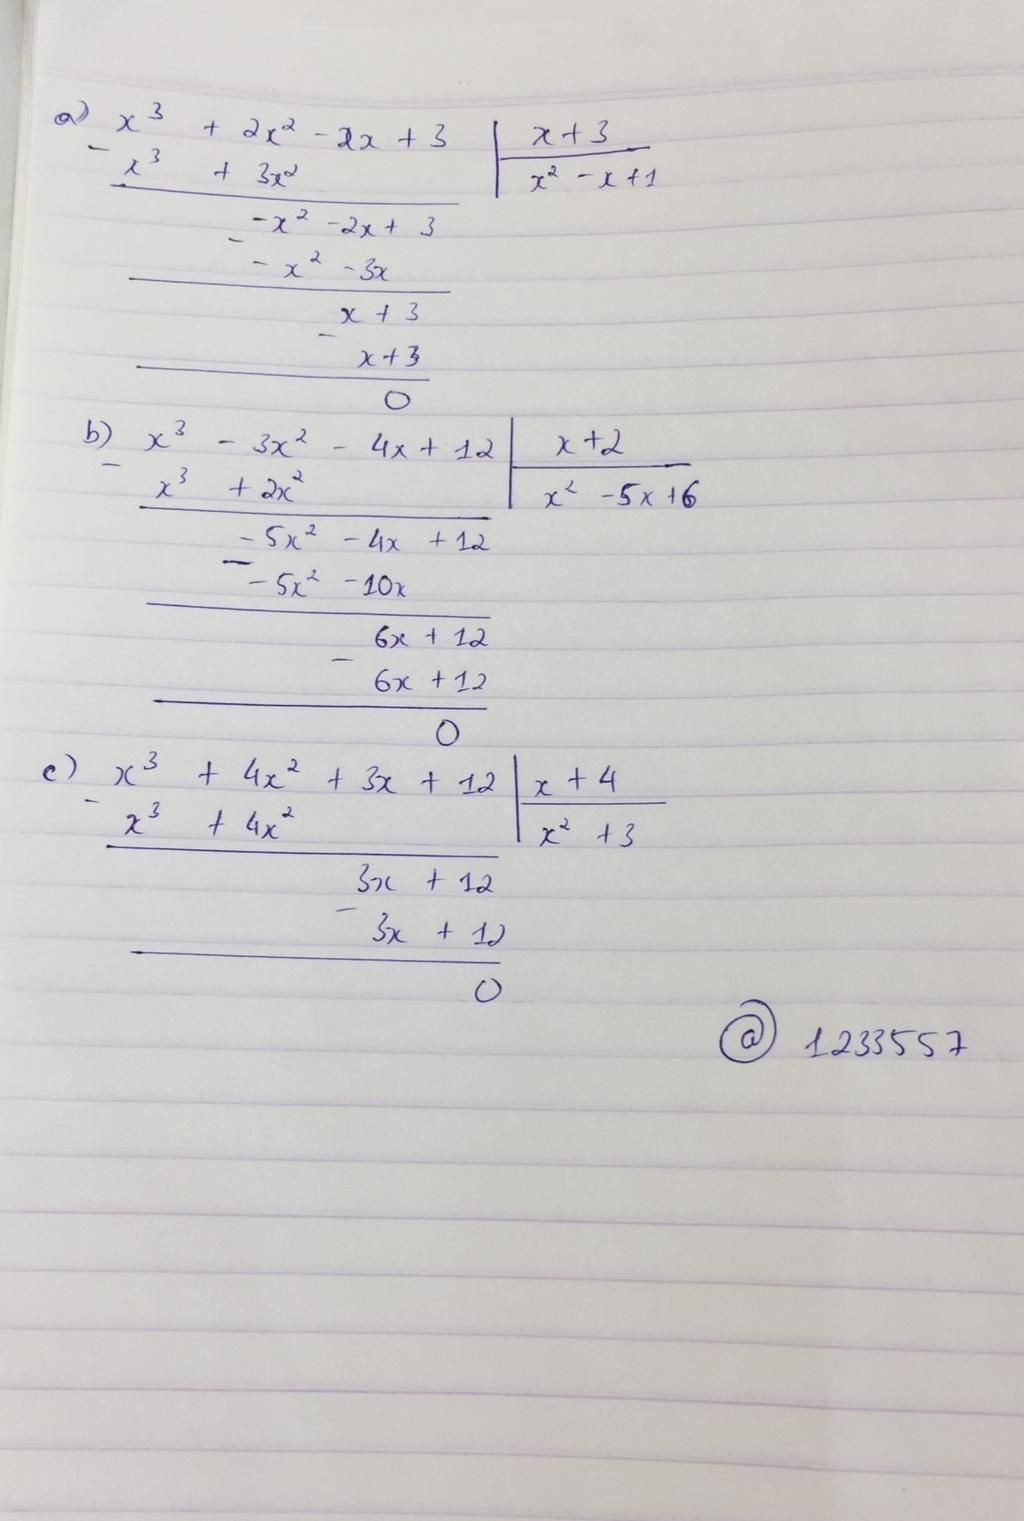 a) x³ + 2x² - 2x + 3 | x + 3
- x³ + 3x² | x² - x + 1
-x² - 2x + 3
- - x² - 3x
x + 3
- x + 3
0
b) x³ - 3x² - 4x + 12 | x + 2
- x³ + 2x² | x² - 5x + 6
- 5x² - 4x + 12
- - 5x² - 10x
6x + 12
- 6x + 12
0
c) x³ + 4x² + 3x + 12 | x + 4
- x³ + 4x² | x² + 3
3x + 12
- 3x + 12
0
@ 1233557